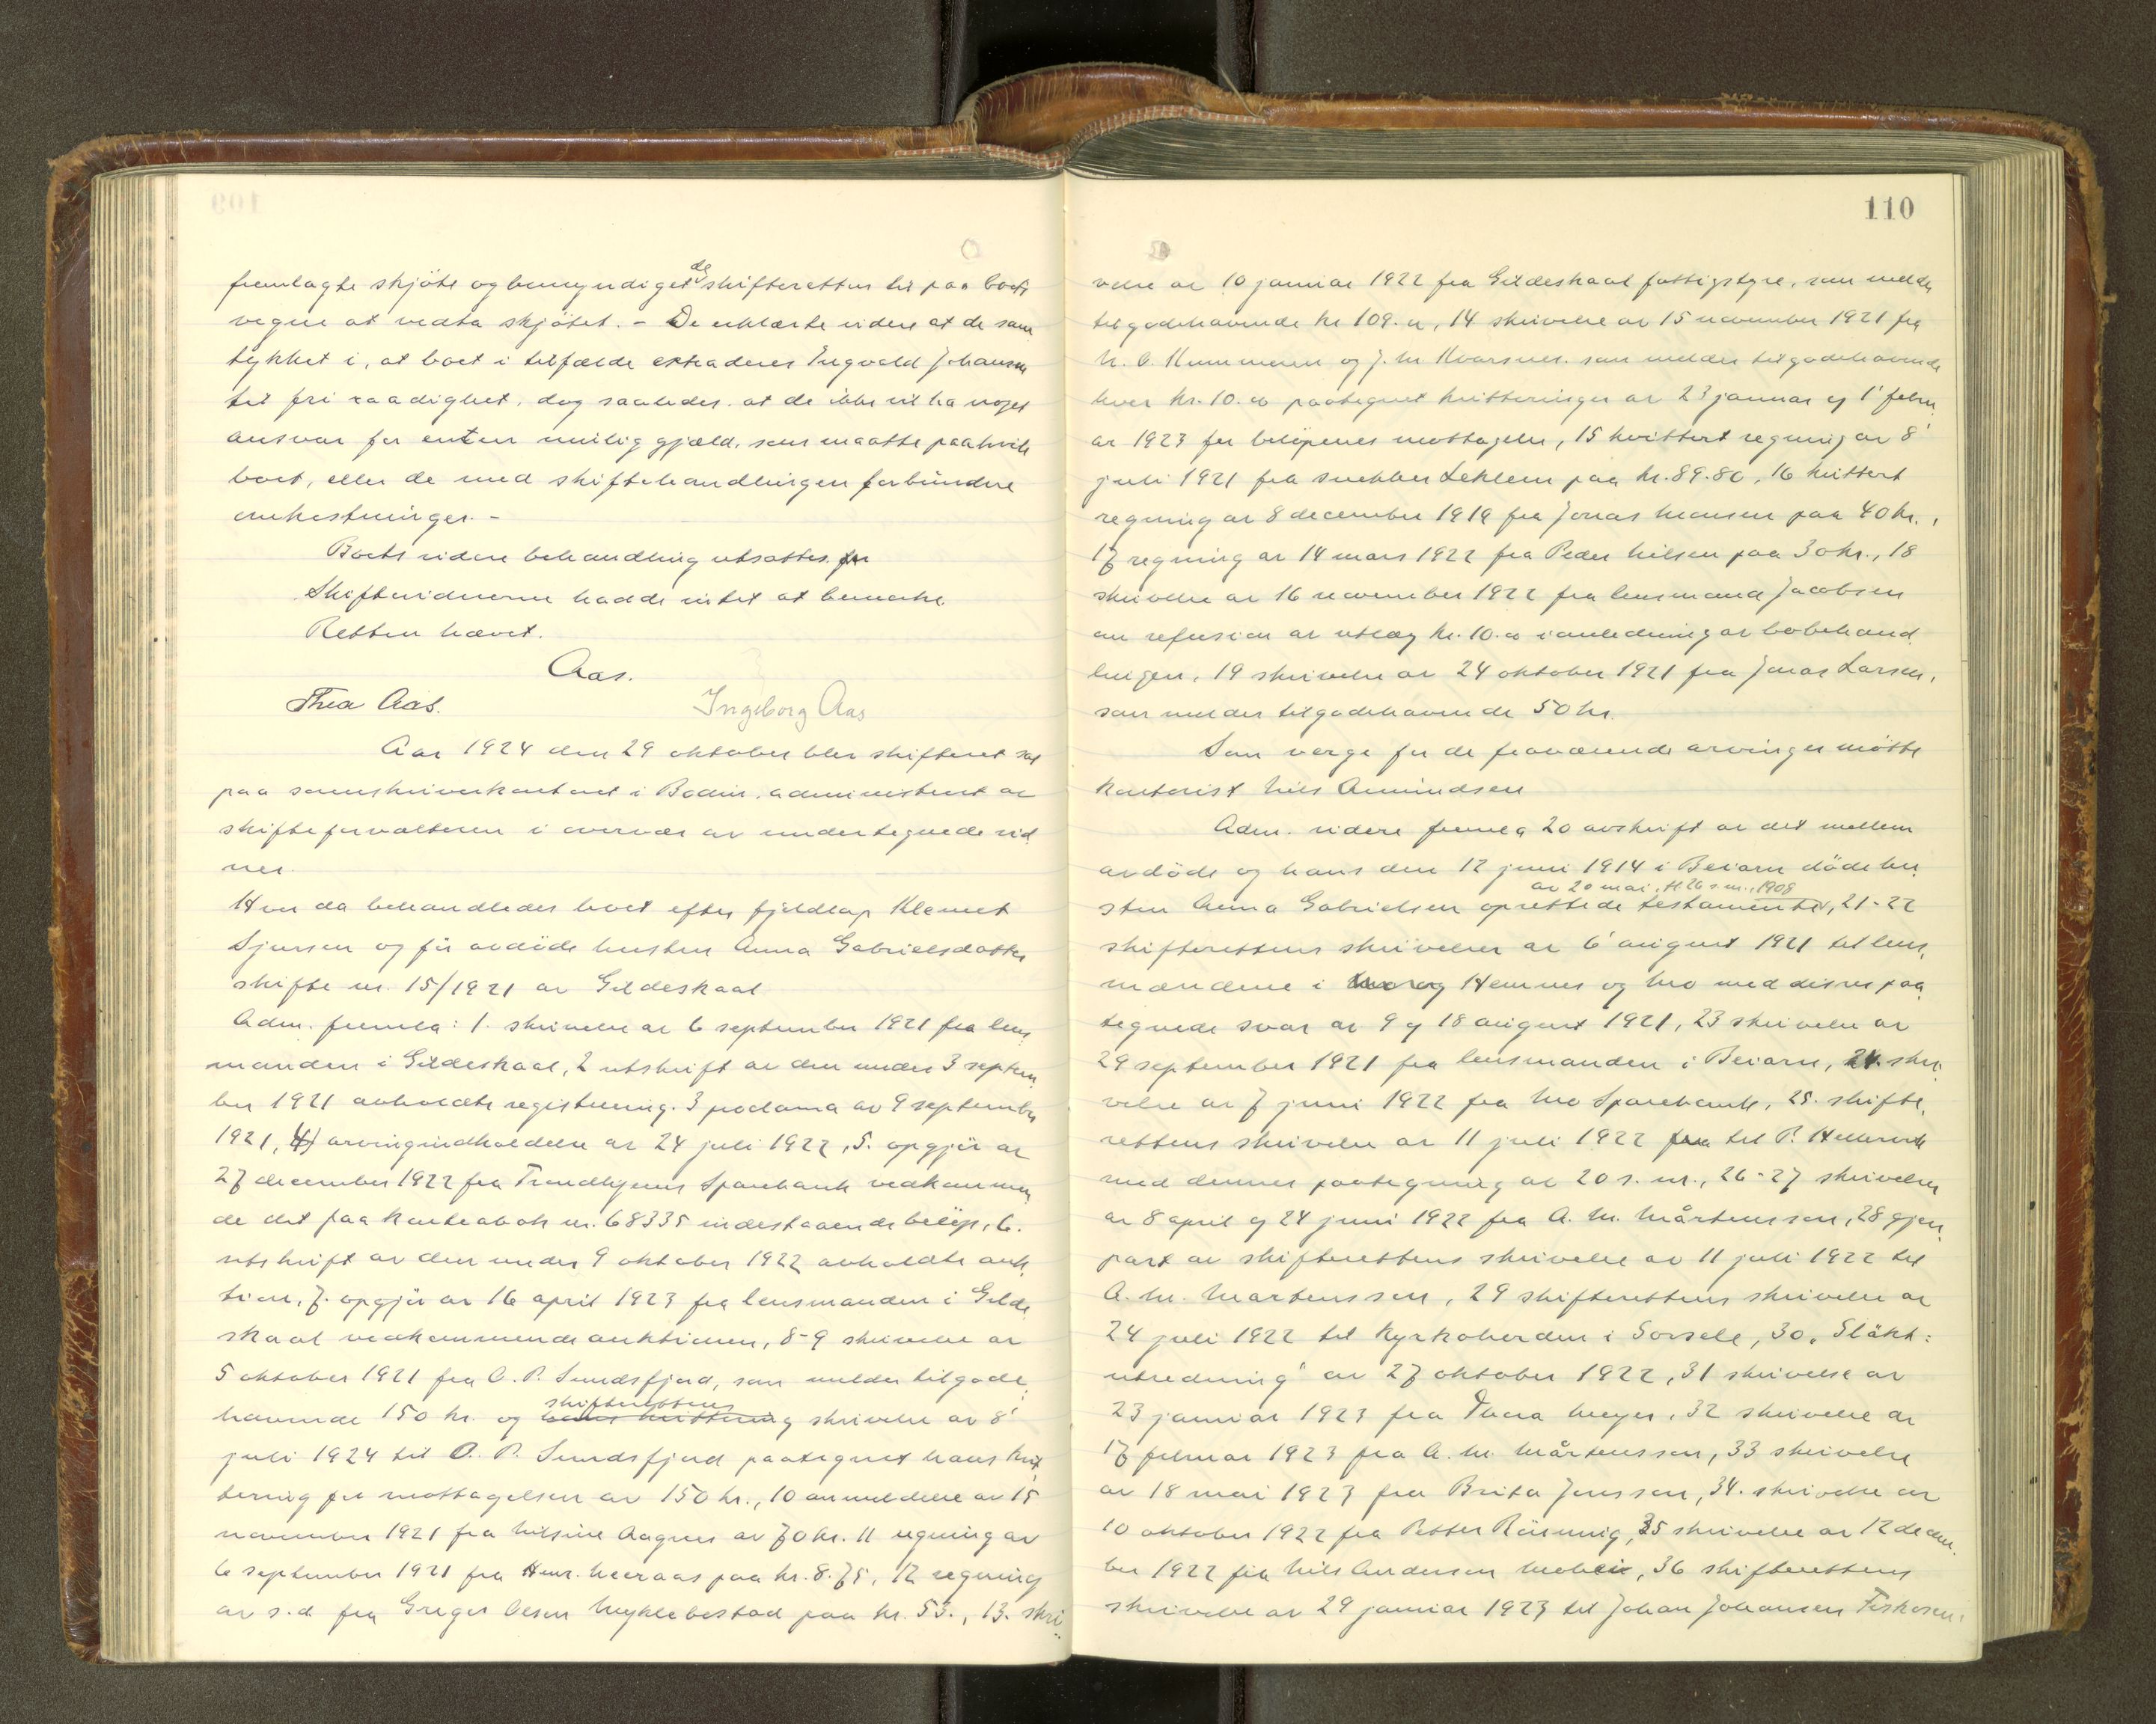 fremlagte skjöte og bemyndiget de skifteretten til paa boets
vegne at vedta skjötet. – De erklærte videre at de sam
tykket i, at boet i tilfælde extraderes Ingvald Johansen
til fri raadighet, dog saaledes at de ikke vil ha noget
ansvar for enten mulig gjæld, som maatte paahvile
boet, eller de med skiftebehandlingen forbundne
omkostninger. –
Boets videre behandling utsattes. for
Skiftevidnerne hadde intet at bemerke.
Retten hævet.
Aas.
Thea Aas. Ingeborg Aas
Aar 1924 den 29 oktober blev skifteret sat
paa sorenskriverkontoret i Bodin, administrert av
skifteforvalteren i overvær av undertegnede vid
ner.
Hvor da behandledes boet efter fjeldlap Klemet
Sjursen og før avdöde hustru Anna Gabrielsdatter
skifte nr. 15/1921 av Gildeskaal
Adm. fremla: 1. skrivelse av 6 september 1921 fra lens
manden i Gildeskaal, 2 utskrift av den under 3 septem
ber 1921 avholdte registrering. 3 proclama av 9 september
1921, 4) arvingindkaldelse av 24 juli 1922, 5. opgjör av
27 december 1922 fra Trondhjems Sparebank vedkommen
de det paa kontrabok nr. 68335 indestaaende belöp, 6.
utskrift av den under 9 oktober 1922 avholdte auk
tion, 7. opgjör av 16 april 1923 fra lensmanden i Gilde
skaal vedkommende auktionen, 8-9 skrivelse av
5 oktober 1921 fra O. P. Sundsfjord, som melder tilgode
havende 150 kr. og skifterettens skrivelse av 8'
juli 1924 til O. P. Sundsfjord paategnet hans kvit
tering for mottagelsen av 150 kr., 10 anmeldelse av 15
november 1921 fra Nilsine Aagnes av 70 kr. 11 regning av
6 september 1921 fra Henr. Meeraas paa kr. 8.75, 12 regning
av s.d. fra Greger Olsen Myklebostad paa kr. 53., 13. skri
110
velse av 10 januar 1922 fra Gildeskaal fattigstyre, som melder
tilgodehavende kr 109.u, 14 skrivelse av 15 november 1921 fra
N. O. Kummeren og J. M. Kvarsnes. som melder tilgodehavende
hver kr. 10.oo paategnet kvitteringer av 23 januar og 1' febru
ar 1923 for belöpenes mottagelse, 15 kvittert regning av 8'
juli 1921 fra snekker Leklem paa kr. 89.80, 16 kvittert
regning av 8 december 1919 fra Jonas Monsen paa 40 kr.,
17 regning av 14 mars 1922 fra Peder Nilsen paa 30 kr., 18
skrivelse av 16 november 1922 fra lensmand Jacobsen
om refusion av utlæg kr. 10.oo i anledning av bobehand
lingen, 19 skrivelse av 24 oktober 1921 fra Jonas Larsen,
som melder tilgodehavende 50 kr.
Som verge for de fraværende arvinger mötte
kontorist Nils Amundsen
Adm. videre fremla 20 avskrift av det mellem
avdöde og hans den 12 juni 1914 i Beiarn döde hu
av 20 mai, tl. 26 s.m., 1908
stru Anna Gabrielsen oprettede testamente, 21-22
skifterettens skrivelser av 6' august 1921 til lens
mændene i Hemnes og Mo med disses paa
tegnede svar av 9 og 18 august 1921, 23 skrivelse av
29 september 1921 fra lensmanden i Beiarn, 24. skri
velse av 7 juni 1922 fra Mo Sparebank, 25. skifte
rettens skrivelse av 11 juli 1922 fra til P. Hellervik
med dennes paategning av 20 s. m., 26-27 skrivelser
av 8 april og 24 juni 1922 fra A. M. Mårtensson, 28 gjen
part av skifterettens skrivelse av 11 juli 1922 til
A. M. Martensson, 29 skifterettens skrivelse av
24 juli 1922 til Kyrkoherden i Sorsele, 30. „Släkt:
utredning" av 27 oktober 1922, 31 skrivelse av
23 januar 1923 fra Thora Meyer, 32 skrivelse av
17 februar 1923 fra A. M. Mårtensson, 33 skrivelse
av 18 mai 1923 fra Brita Jonsson, 34. skrivelse av
10 oktober 1922 fra Petter Rönning, 35 skrivelse av 12 decem
ber 1922 fra Nils Andersen, 36 skifterettens
skrivelse av 29 januar 1923 til Johan Johansen Fiskosen.